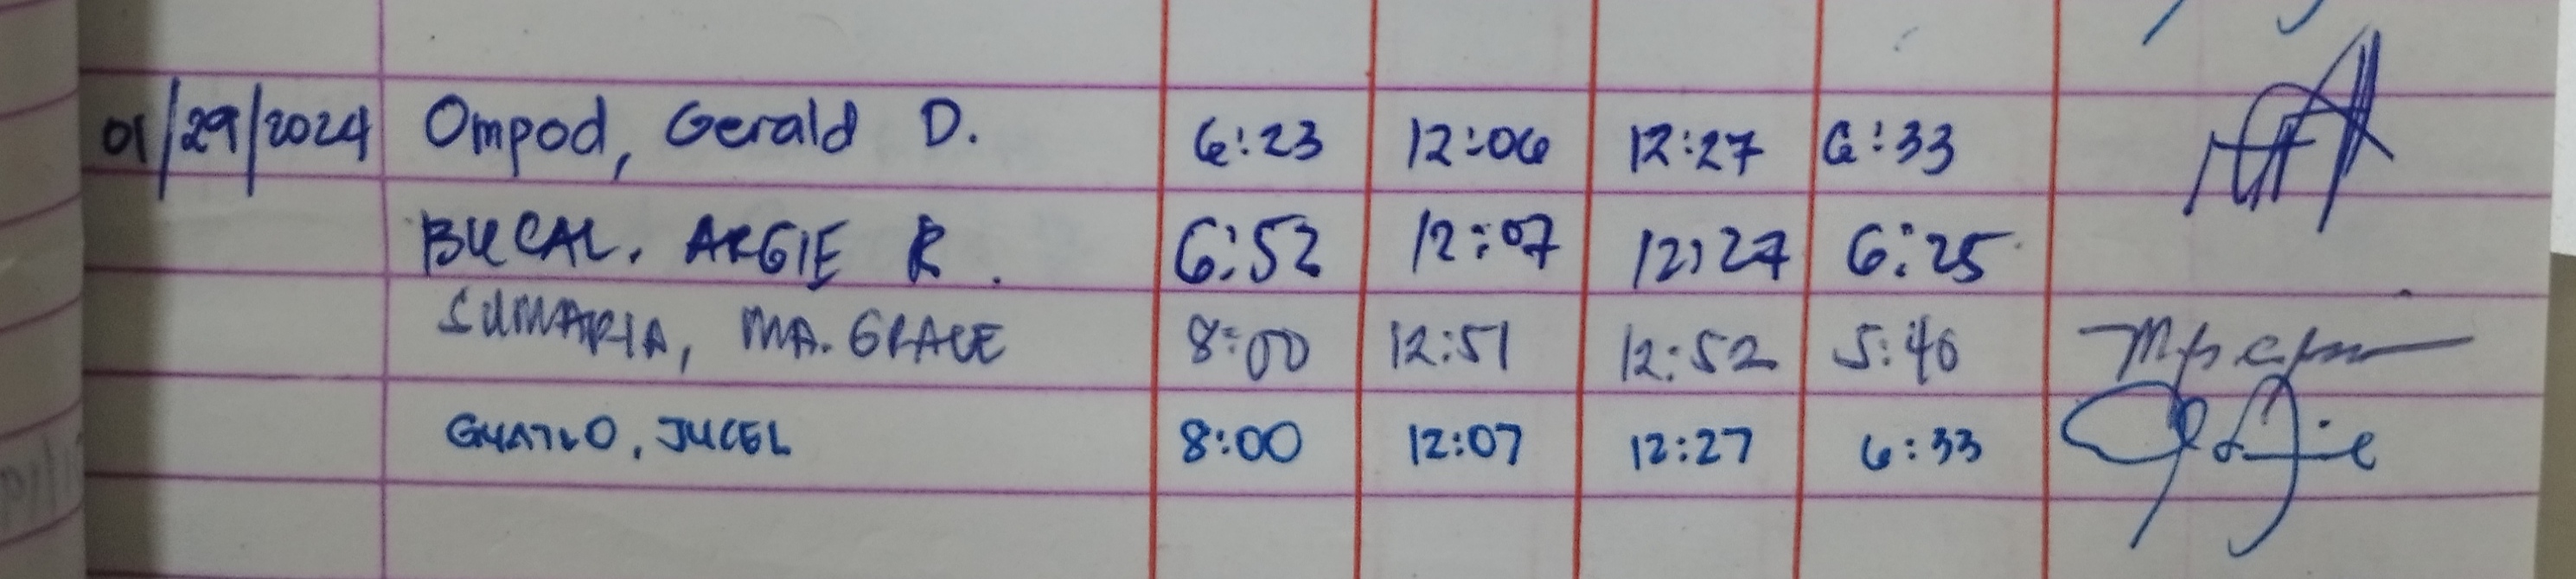 01/29/2024 Ompod, Gerald D. 6:23 12:06 12:27 6:33
BUCAL, ARGIE R. 6:52 12:07 12:27 6:25
SUMARIA, MA. GRACE 8:00 12:51 12:52 5:46
GUATLO, JUCEL 8:00 12:07 12:27 6:33